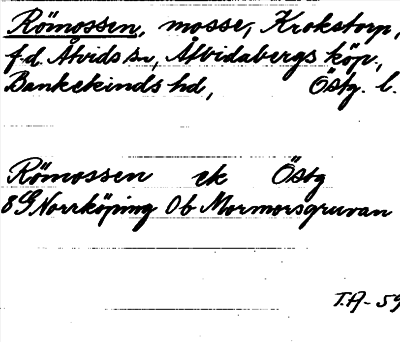 Römossen, mosse, Krokstorp,
f.d. Åtvids sn, Åtvidabergs köp.,
Bankekinds hd, Östg. l.
Römossen ek Östg
8G Norrköping 0b Mormorsgruvan
T.A-59